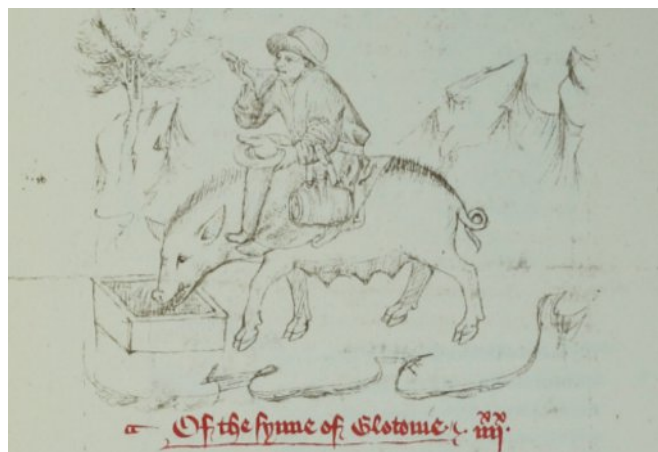 a Of the synne of Glotonie. iiij xx.